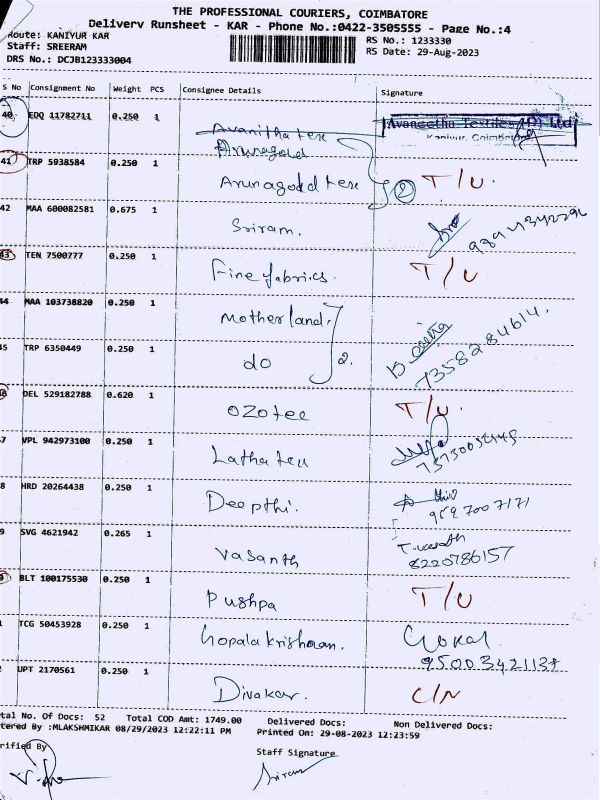 THE PROFESSIONAL COURIERS, COIMBATORE
Delivery Runsheet - KAR - Phone No.:0422-3505555 - Page No.:4
Route: KANIYUR KAR
RS No.: 1233330
Staff: SREERAM
RS Date: 29-Aug-2023
DRS No.: DCJB123333004
S No Consignment No Weight PCS Consignee Details Signature
40 EDQ 11782711 0.250 1 Avanitha tex Avaneetha Textiles (P) Ltd
Arunagold Kaniyur, Coimbatore
41 TRP 5938584 0.250 1 Arunagold tex 2 T/U.
42 MAA 600082581 0.675 1 Sriram.
43 TEN 7500777 0.250 1 Fine fabrics. T/U
44 MAA 103738820 0.250 1 Motherland.
45 TRP 6350449 0.250 1 do 2. 7358284614.
46 DEL 529182788 0.620 1 OZO tee T/U.
47 VPL 942973100 0.250 1 Latha tex
8 HRD 20264438 0.250 1 Deepthi. 9597007171
9 SVG 4621942 0.265 1 Vasanth 8220786157
BLT 100175530 0.250 1 Pushpa T/U
1 TCG 50453928 0.250 1 Gopala krishnan. Gokul
9500342113
UPT 2170561 0.250 1 Divakar. C/N
tal No. Of Docs: 52 Total COD Amt: 1749.00 Delivered Docs: Non Delivered Docs:
tered By :MLAKSHMIKAR 08/29/2023 12:22:11 PM Printed On: 29-08-2023 12:23:59
rified By Staff Signature
Sriram